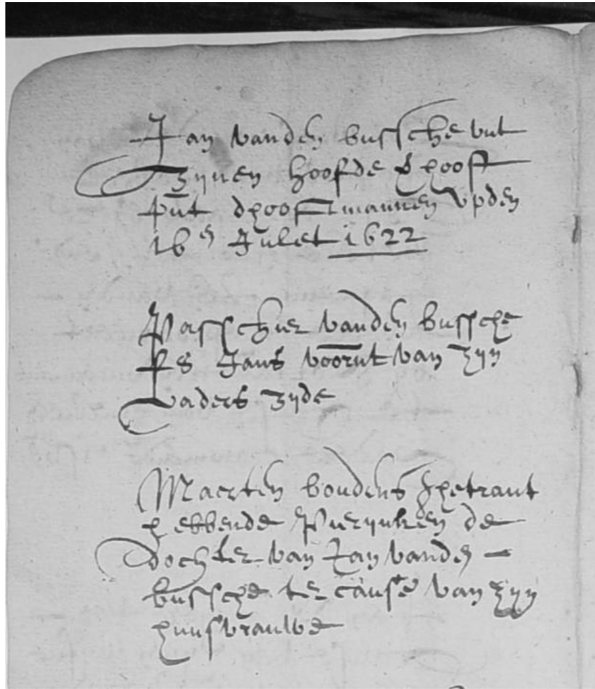 Jan vanden bussche uut
zynen hoofde ghooft
put dhooftmannen upden
16en Julet 1622
Passchier vanden bussche
fs Jans voornt van zyn
vaders zyde
Maerten boudens ghetraut
hebbende Pierynken de
dochter van Jan vanden
bussche ter cause van zyn
huusvrauwe